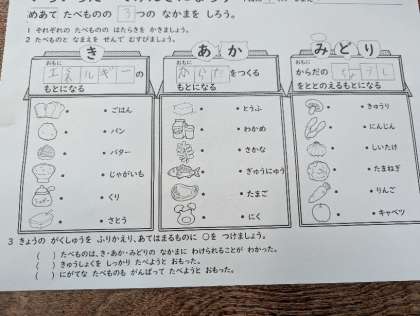 めあて たべものの 3つの なかまを しろう。
1 それぞれの たべものの はたらきを かきましょう。
2 たべものと なまえを せんで むすびましょう。
き
おもに
エネルギーの
もとになる
ごはん
パン
バター
じゃがいも
くり
さとう
あか
おもに
からだをつくる
もとになる
とうふ
わかめ
さかな
ぎゅうにゅう
たまご
にく
みどり
おもに
からだの
をととのえるもとになる
きゅうり
にんじん
しいたけ
たまねぎ
りんご
キャベツ
3 きょうの がくしゅうを ふりかえり、あてはまるものに ○を つけましょう。
( ) たべものは、き・あか・みどりの なかまに わけられることが わかった。
( ) きゅうしょくを しっかり たべようと おもった。
( ) にがてな たべものも がんばって たべようと おもった。